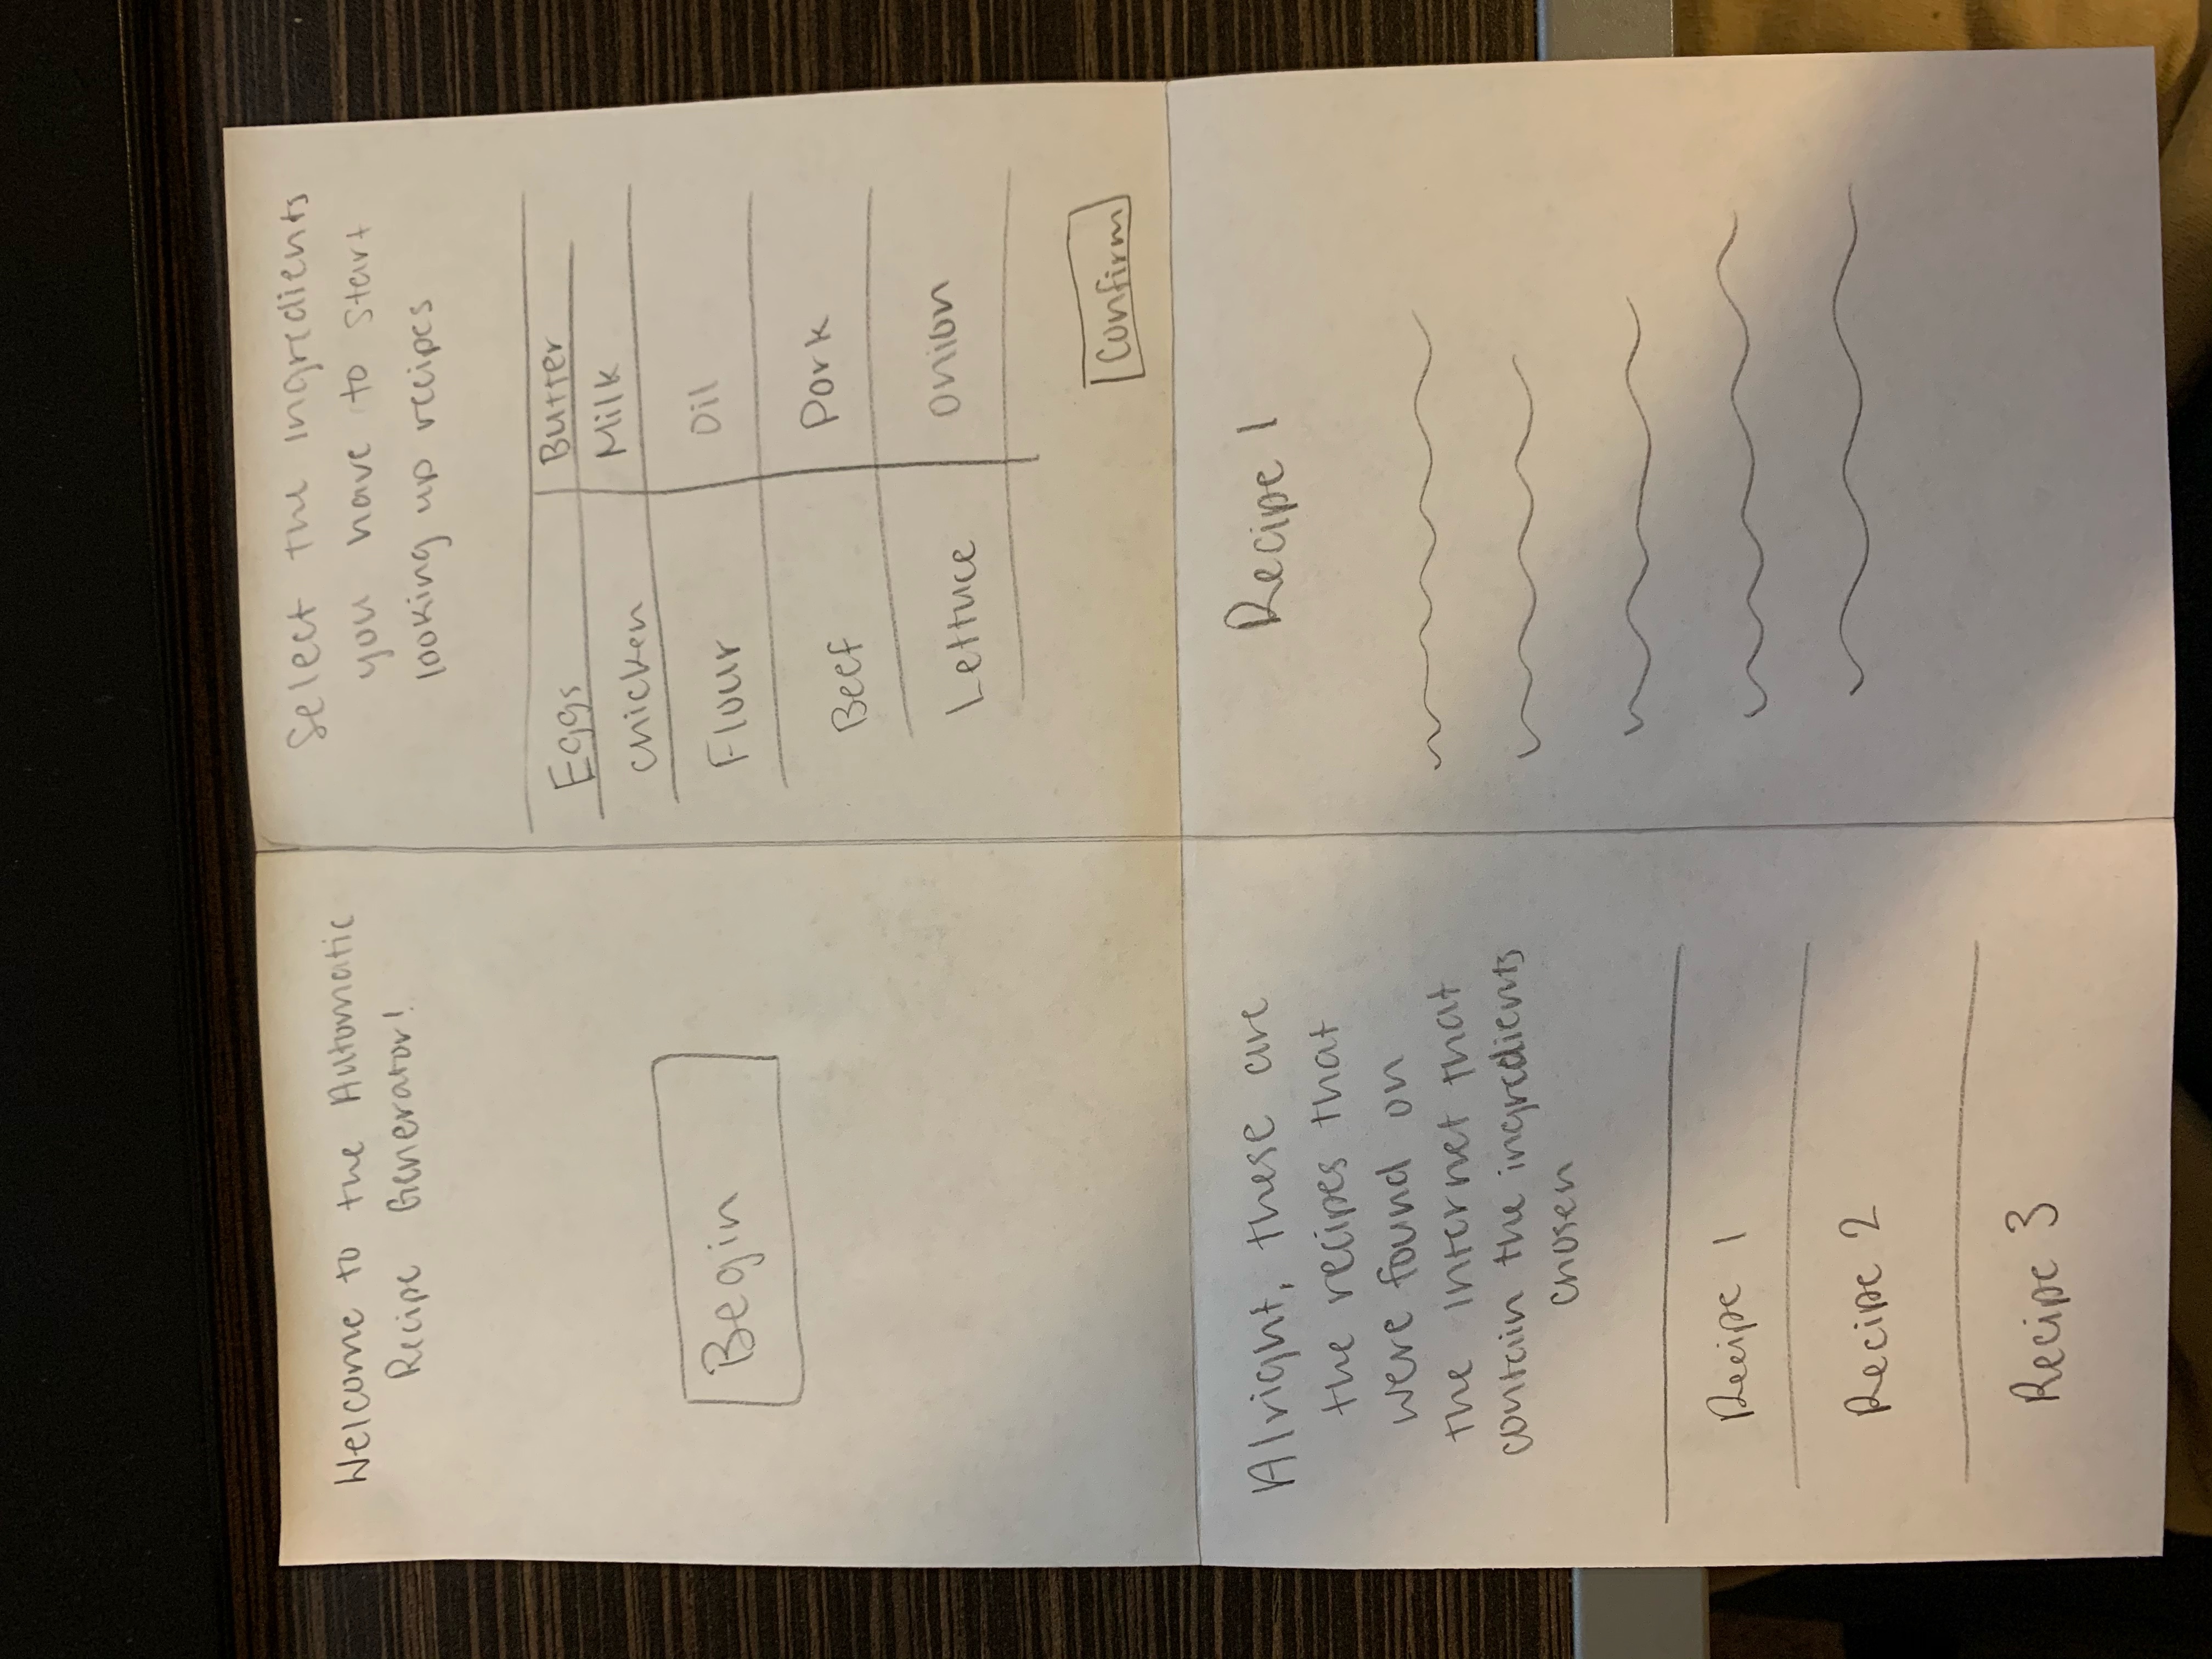 Welcome to the Automatic
Recipe Generator!
Begin
Select the ingredients
you have to start
looking up recipes
Eggs
Butter
chicken
Milk
Flour
Oil
Beef
Pork
Lettuce
Onion
Confirm
Alright, these are
the recipes that
were found on
the internet that
contain the ingredients
chosen
Recipe 1
Recipe 2
Recipe 3
Recipe 1